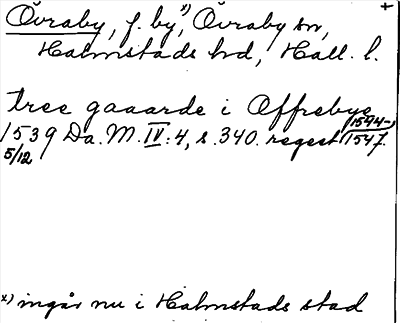 +
Övraby, f. by,x) Övraby sn,
Halmstads hd, Hall. l.
tree gaaarde i Offrebye
1539 Da. M. IV:4, s. 340. regest 1544–1547.
5/12
x) ingår nu i Halmstads stad